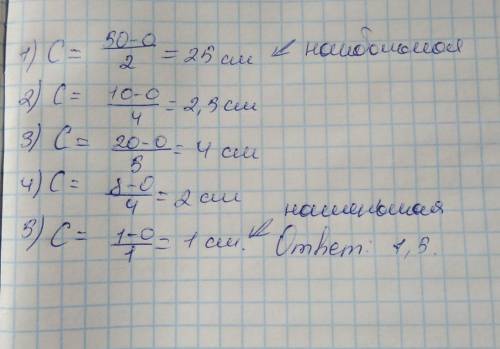 1) C = 50-0/2 = 25 см ↙ наибольшая
2) C = 10-0/4 = 2,5 см
3) C = 20-0/5 = 4 см
4) C = 8-0/4 = 2 см
наименьшая
5) C = 1-0/1 = 1 см. ↙ Ответ: 1,5.